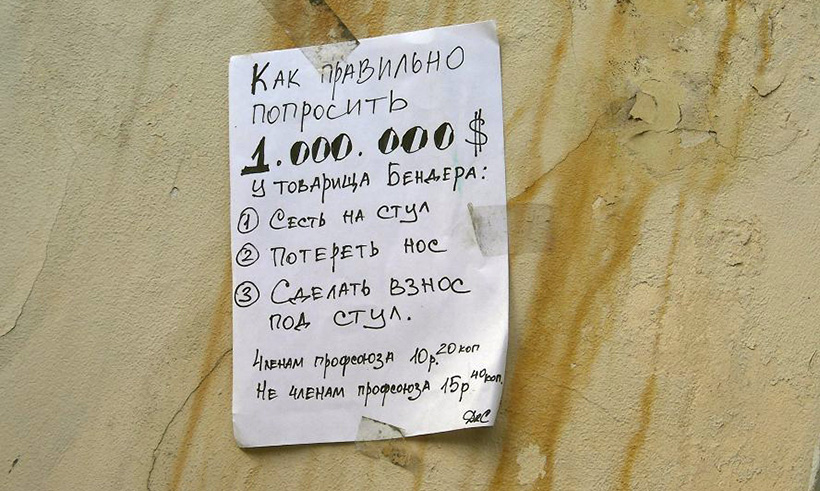 Как правильно
попросить
1.000.000 $
у товарища Бендера:
1 Сесть на стул
2 Потереть нос
3 Сделать взнос
под стул.
Членам профсоюза 10р. 20 коп
Не членам профсоюза 15р 40 коп.